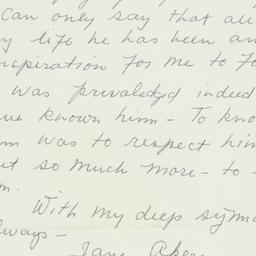 Can only say that all
y life he has been an
nspiration for me to fo
was privaledged indeed
ve known him - To kno
m was to respect him
ut so much more - to -
m.
With my deep sym
lways -
Jane Aker